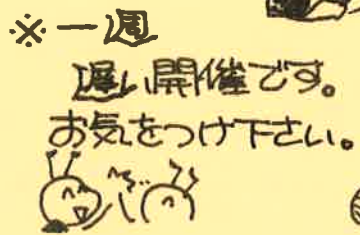 ※一週
遅い開催です。
お気をつけ下さい。